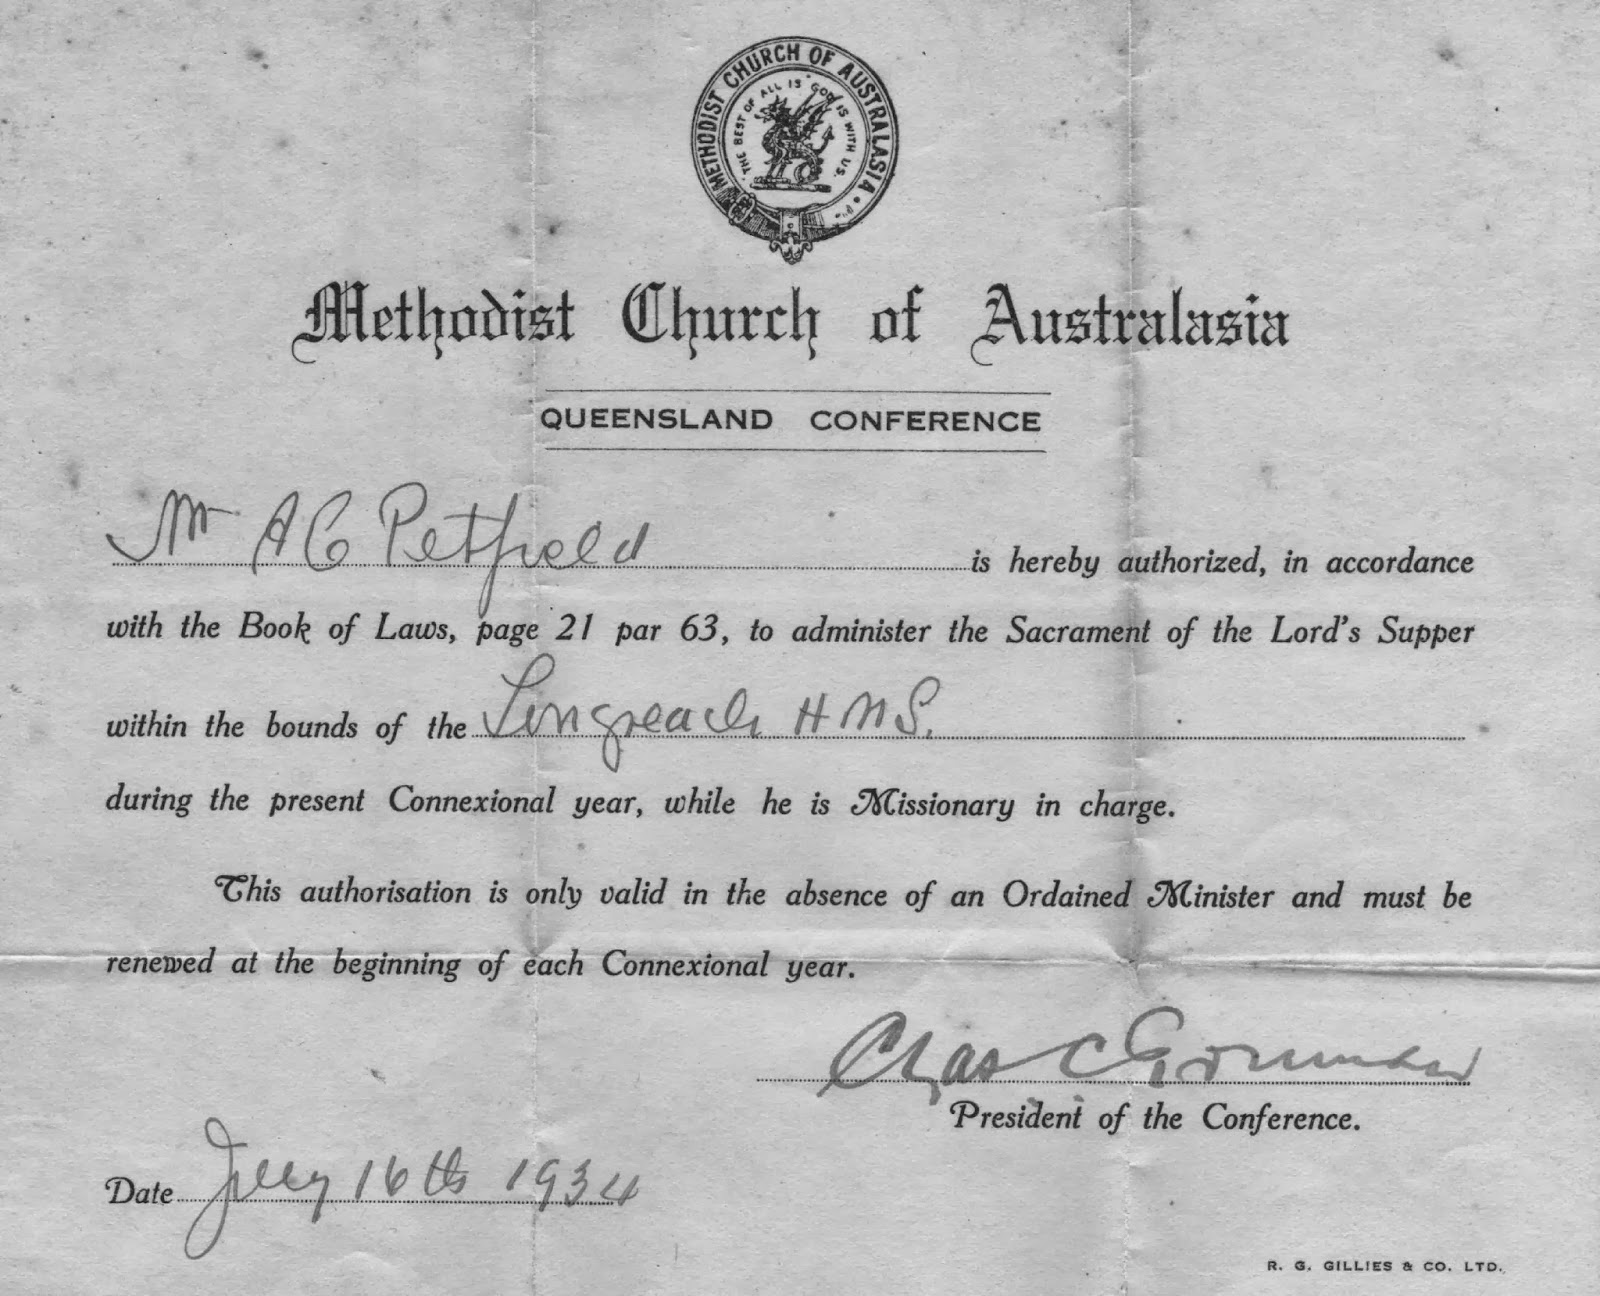 METHODIST CHURCH OF AUSTRALASIA
THE BEST OF ALL IS GOD IS WITH US.
Methodist Church of Australasia
QUEENSLAND CONFERENCE
Mr A C Petfield is hereby authorized, in accordance
with the Book of Laws, page 21 par 63, to administer the Sacrament of the Lord's Supper
within the bounds of the Longreach H M S.
during the present Connexional year, while he is Missionary in charge.
This authorisation is only valid in the absence of an Ordained Minister and must be
renewed at the beginning of each Connexional year.
Chas C
President of the Conference.
Date July 16th 1934
R. G. GILLIES & CO. LTD.